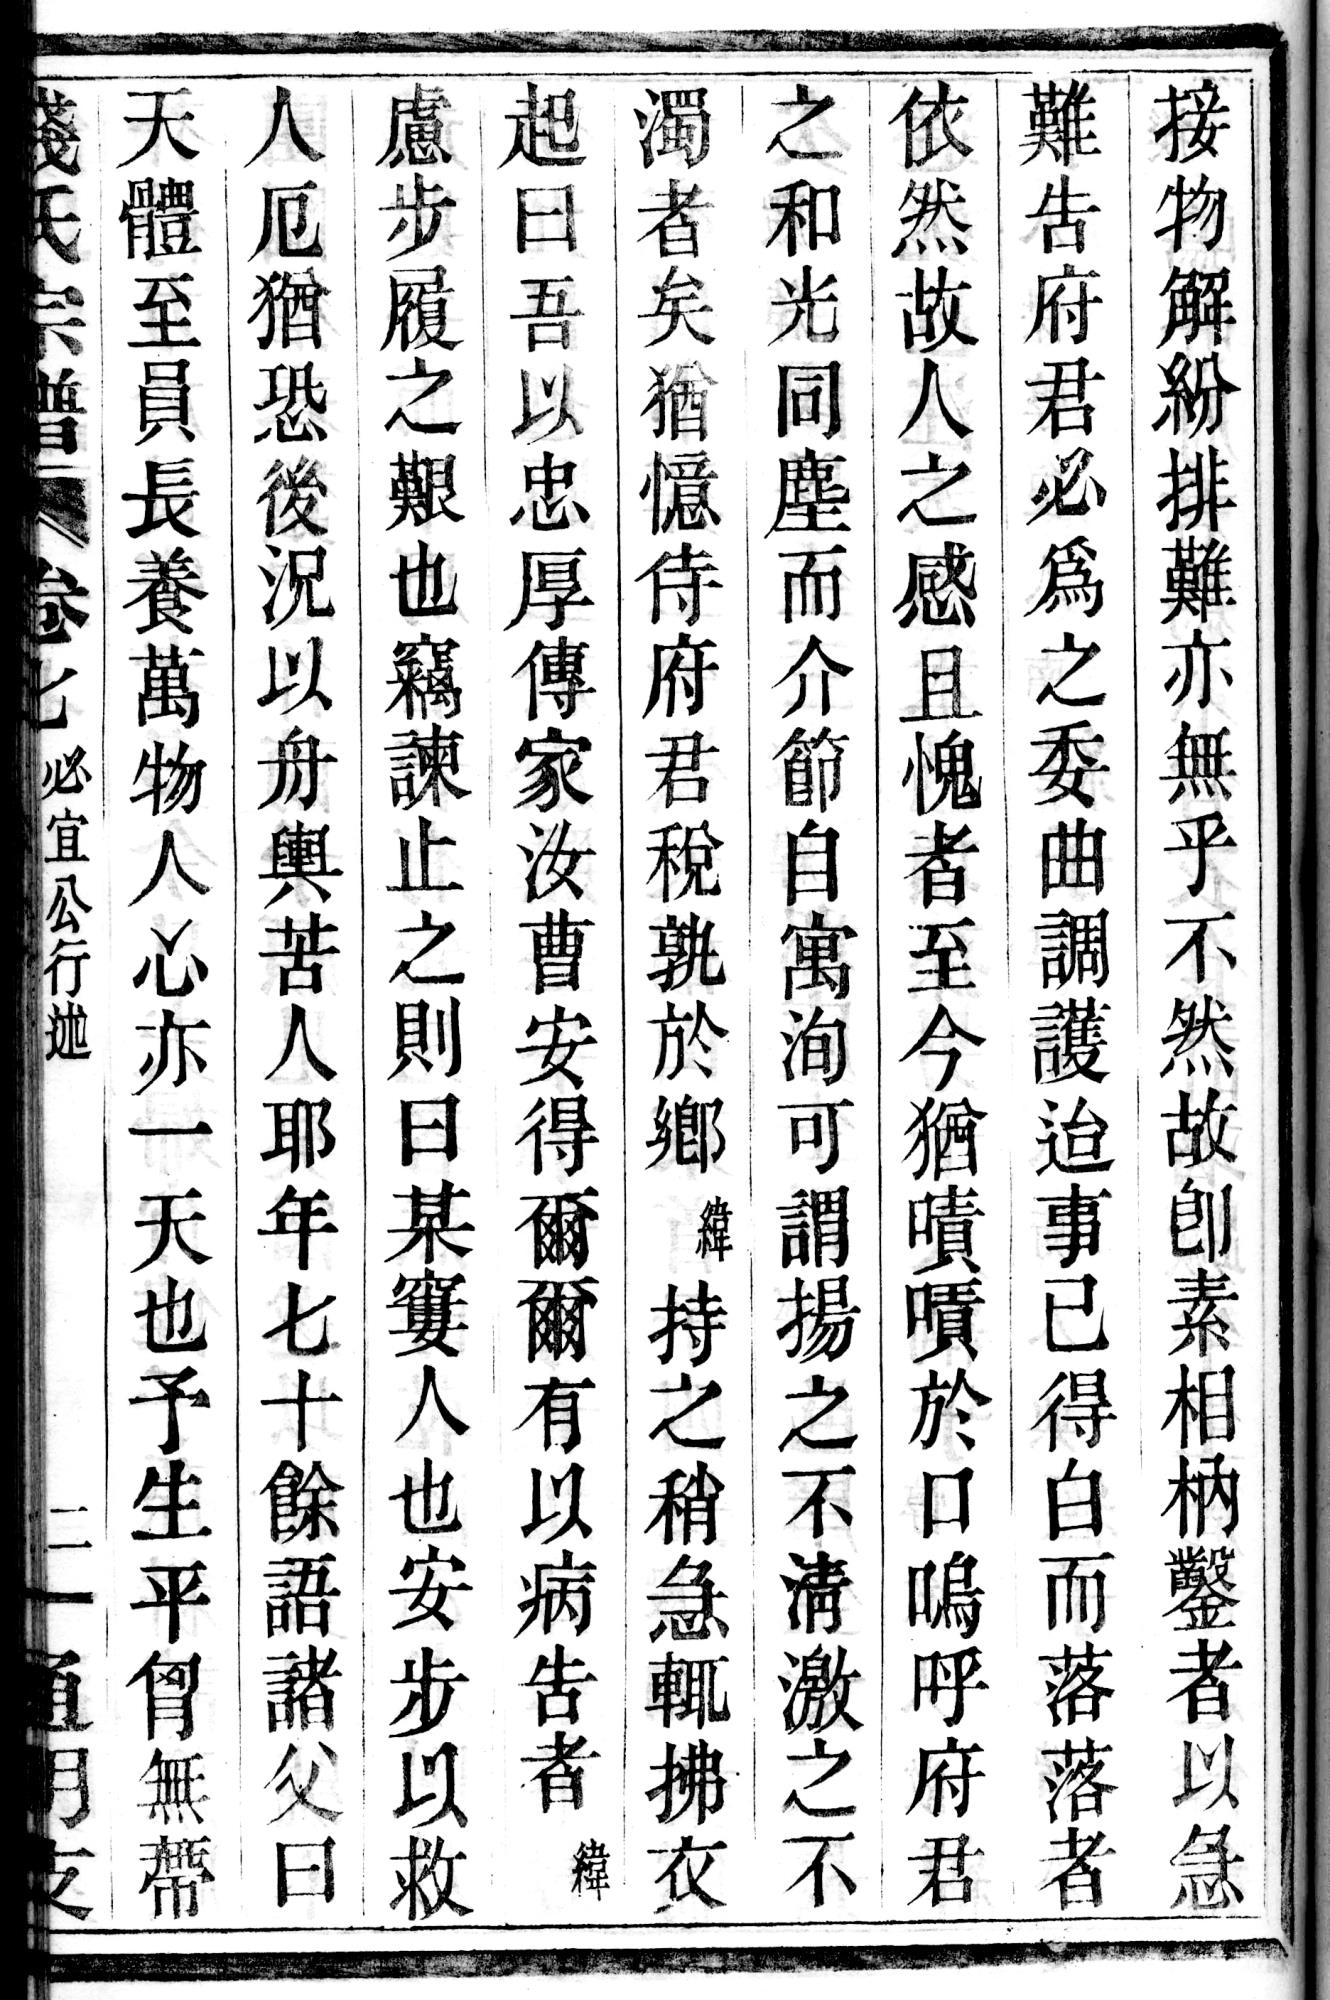 接物解紛排難亦無乎不然故卽素相枘鑿者以急
難告府君必爲之委曲調護迨事已得白而落落者
依然故人之感且愧者至今猶嘖嘖於口嗚呼府君
之和光同塵而介節自寓洵可謂揚之不淸激之不
濁者矣猶憶侍府君稅孰於鄕緯持之稍急輒拂衣
起曰吾以忠厚傳家汝曹安得爾爾有以病告者緯
慮步履之艱也竊諫止之則曰某窶人也安步以救
人厄猶恐後況以舟輿苦人耶年七十餘語諸父曰
天體至員長養萬物人心亦一天也予生平曾無帶
錢氏宗譜 卷七 必宜公行述 二一 通明支